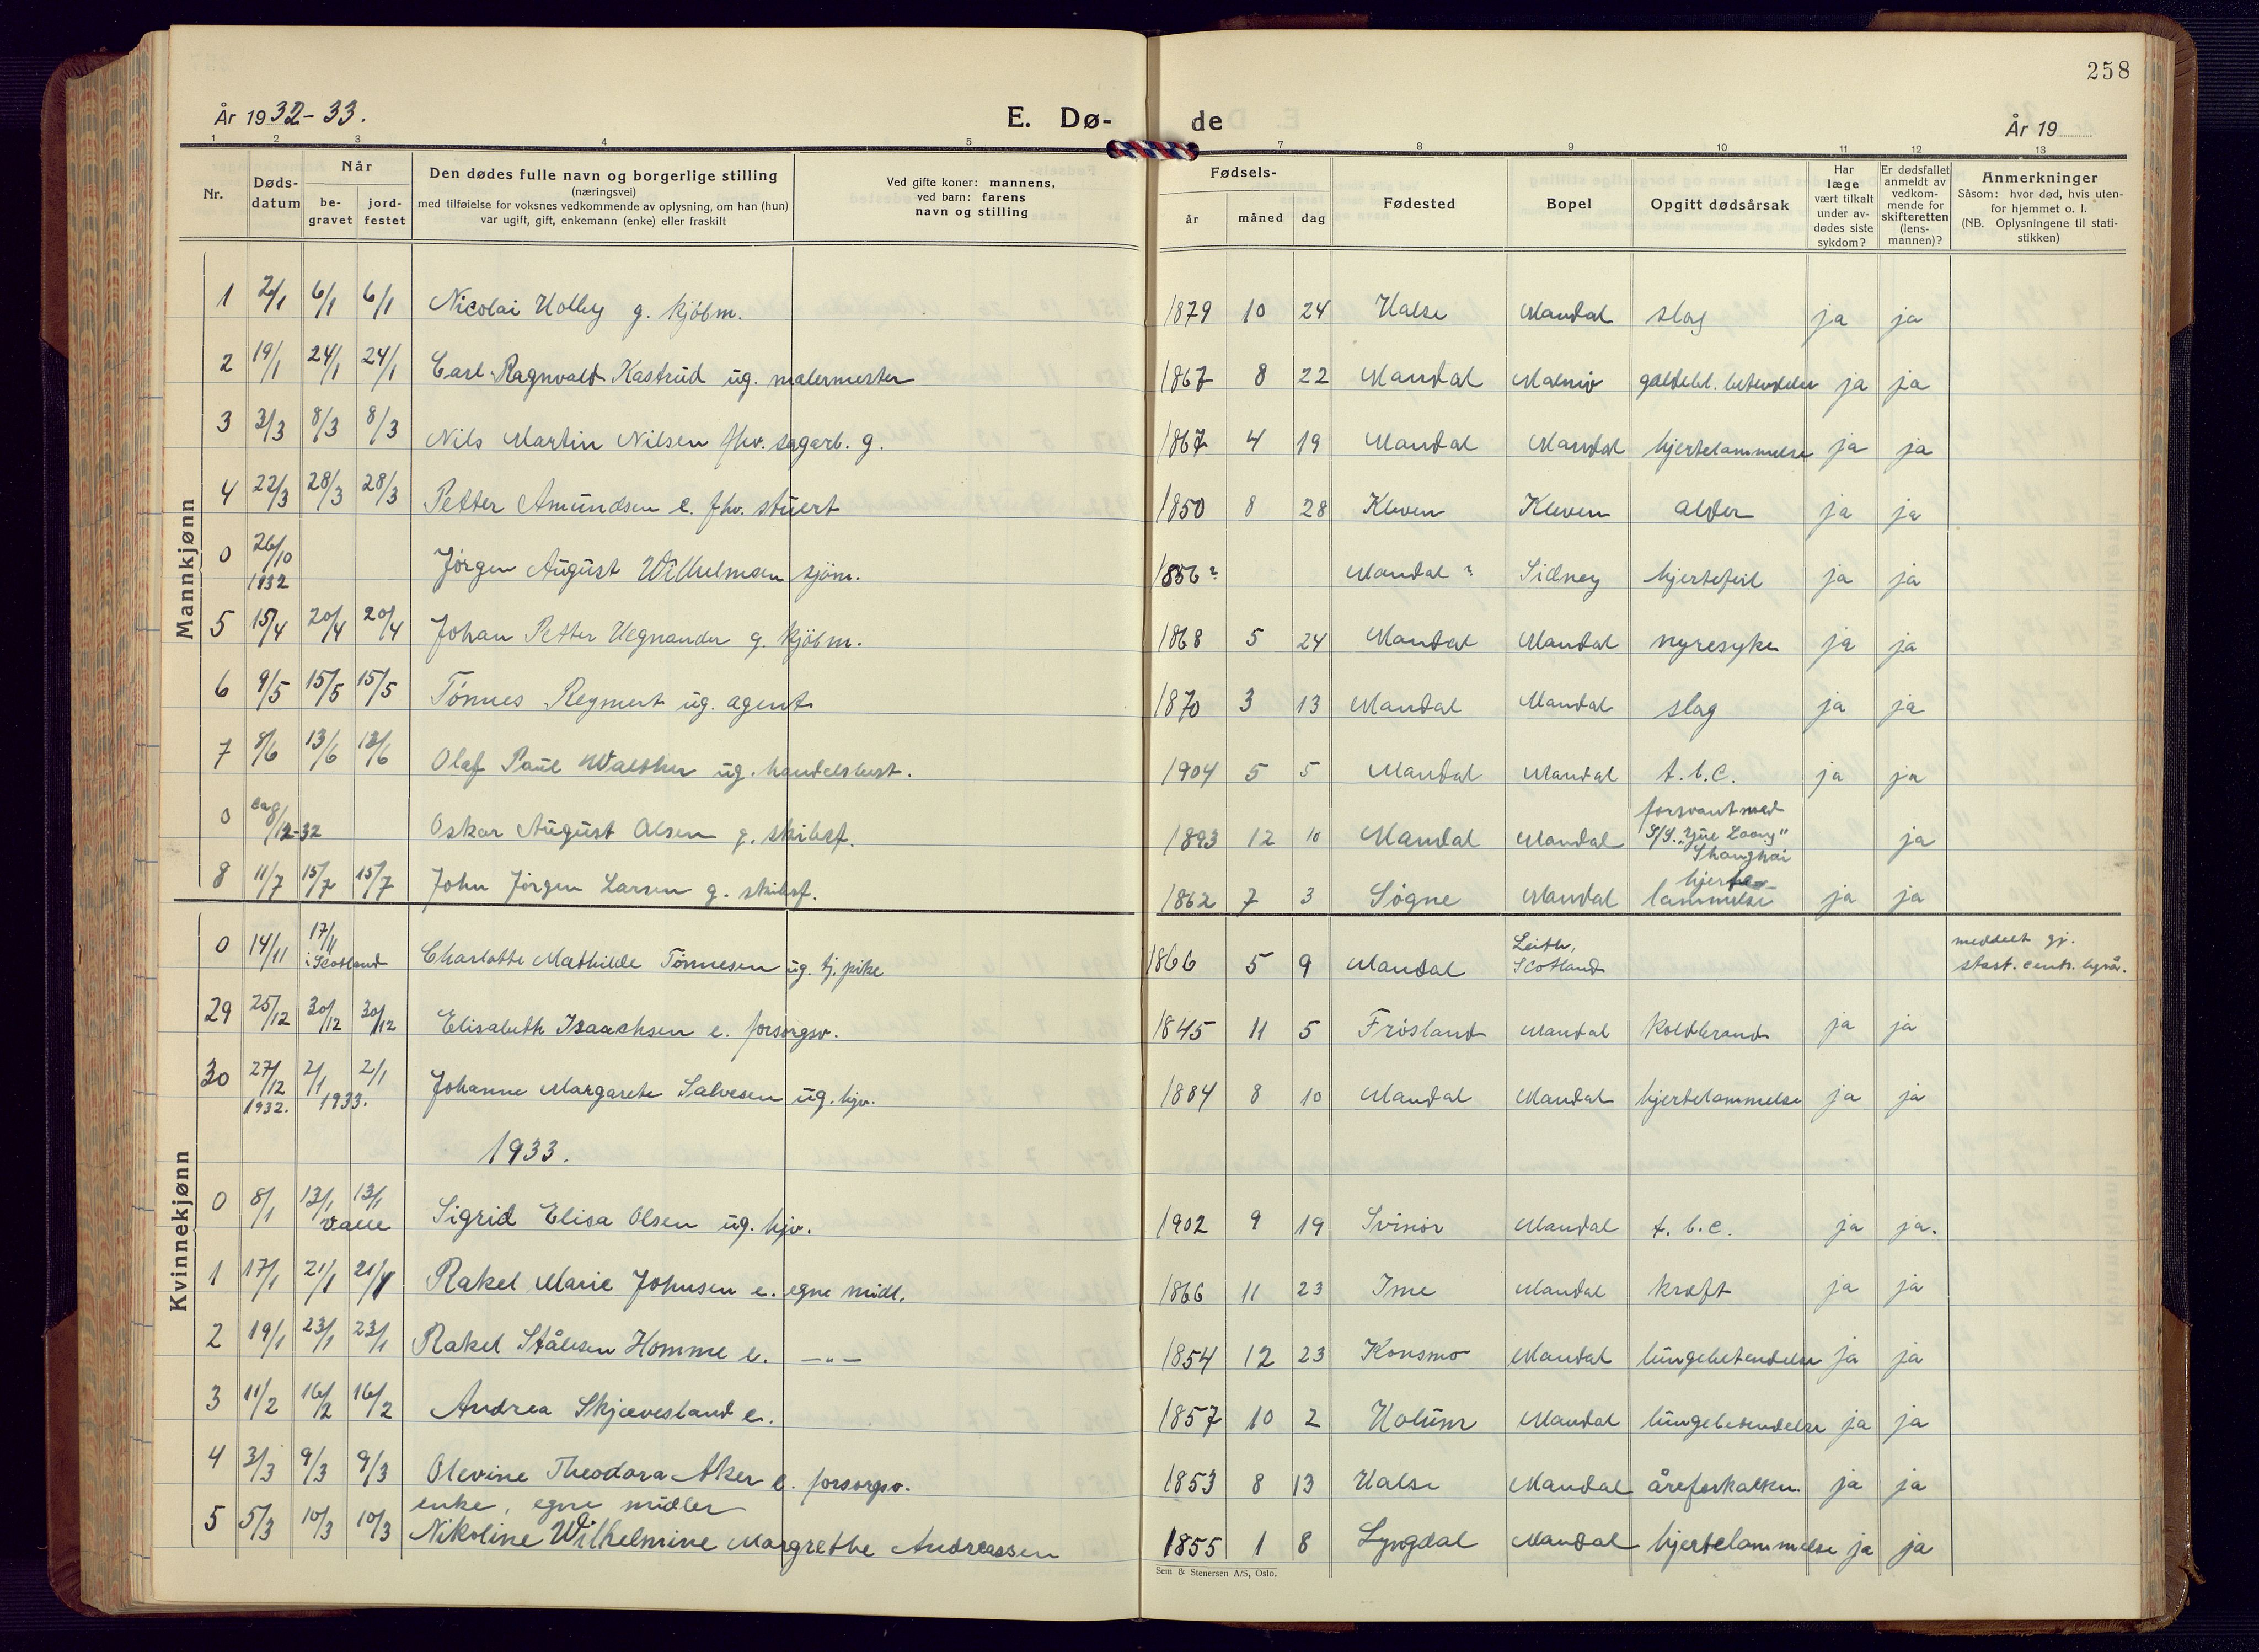 258
År 1932-33.
E. Dø-
de
År 19
1 2 3 4 5 7 8 9 10 11 12 13
Nr.
Døds-
datum
Når
be-
gravet
jord-
festet
Den dødes fulle navn og borgerlige stilling
(næringsvei)
med tilføielse for voksnes vedkommende av oplysning, om han (hun)
var ugift, gift, enkemann (enke) eller fraskilt
Ved gifte koner: mannens,
ved barn: farens
navn og stilling
Fødsels-
år
måned
dag
Fødested
Bopel
Opgitt dødsårsak
Har
læge
vært tilkalt
under av-
dødes siste
sykdom?
Er dødsfallet
anmeldt av
vedkom-
mende for
skifteretten
(lens-
mannen)?
Anmerkninger
Såsom: hvor død, hvis uten-
for hjemmet o. l.
(NB. Oplysningene til stati-
stikken)
Mannkjønn
1 2/1 6/1 6/1 Nicolai Holby g. kjøbm. 1879 10 24 Halse Mandal slag ja ja
2 19/1 24/1 24/1 Carl Ragnvald Kastrud ug. malermester 1867 8 22 Mandal Malmø galdebl. betendelse ja ja
3 3/3 8/3 8/3 Nils Martin Nilsen fhv. sagarb. g. 1867 4 19 Mandal Mandal hjertelammelse ja ja
4 22/3 28/3 28/3 Petter Amundsen e. fhv. stuert 1850 8 28 Kleven Kleven alder ja ja
0 26/10 1932 Jørgen August Wilhelmsen sjøm. 1856? Mandal? Sidney hjertefeil ja ja
5 15/4 20/4 20/4 Johan Petter Hegnander g. kjøbm. 1868 5 24 Mandal Mandal nyresyke ja ja
6 9/5 15/5 15/5 Tönnes Reymert ug. agent 1870 3 13 Mandal Mandal slag ja ja
7 8/6 13/6 13/6 Olaf Paul Walther ug. handelsbest. 1904 5 5 Mandal Mandal t.b.c. ja ja
0 ca 8/12-32 Oskar August Olsen g. skibsf. 1893 12 10 Mandal Mandal forsvant med S/S. "Yue Loong" Shanghai ja
8 11/7 15/7 15/7 John Jörgen Larsen g. skibsf. 1862 7 3 Søgne Mandal hjerte- lammelse ja ja
Kvinnekjønn
0 14/11 17/11 i Scotland Charlotte Mathilde Tönnesen ug. tj. pike 1866 5 9 Mandal Leith, Scotland meddelt gj. stat. centr. byrå.
29 25/12 30/12 30/12 Elisabeth Isaachsen e. forsorgsv. 1845 11 5 Frøsland Mandal koldbrand ja ja
30 27/12 1932. 2/1 2/1 1933. Johanne Margarete Salvesen ug. hjv. 1884 8 10 Mandal Mandal hjertelammelse ja ja
1933.
0 8/1 13/1 13/1 Valle Sigrid Elisa Olsen ug. hjv. 1902 9 19 Svinør Mandal t.b.c. ja ja.
1 17/1 21/1 21/1 Rakel Marie Johnsen e. egne midl. 1866 11 23 Ime Mandal kræft ja ja
2 19/1 23/1 23/1 Rakel Stålesen Homme e. —"— 1854 12 23 Konsmo Mandal lungebetendelse ja ja
3 11/2 16/2 16/2 Andrea Skjævesland e. 1857 10 2 Holum Mandal lungebetendelse ja ja
4 3/3 9/3 9/3 Olevine Theodora Aker e. forsorgsv. 1853 8 13 Halse Mandal åreforkalkn. ja ja
enke, egne midler
5 5/3 10/3 10/3 Nikoline Wilhelmine Margrethe Andreassen 1855 1 8 Lyngdal Mandal hjertelammelse ja ja
Sem & Stenersen A/S, Oslo.